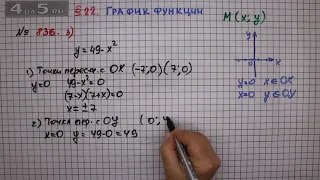 4at5.ru
§22. График функции
№ 836. з)
y = 49 - x²
M (x; y)
1) Точки пересеч. с OX (-7; 0) (7; 0)
y=0 49-x²=0
(7-x)(7+x)=0
x = ±7
y=0 x∈OX
x=0 y∈OY
2) Точка пер. с OY (0; 4
x=0 y=49-0=49